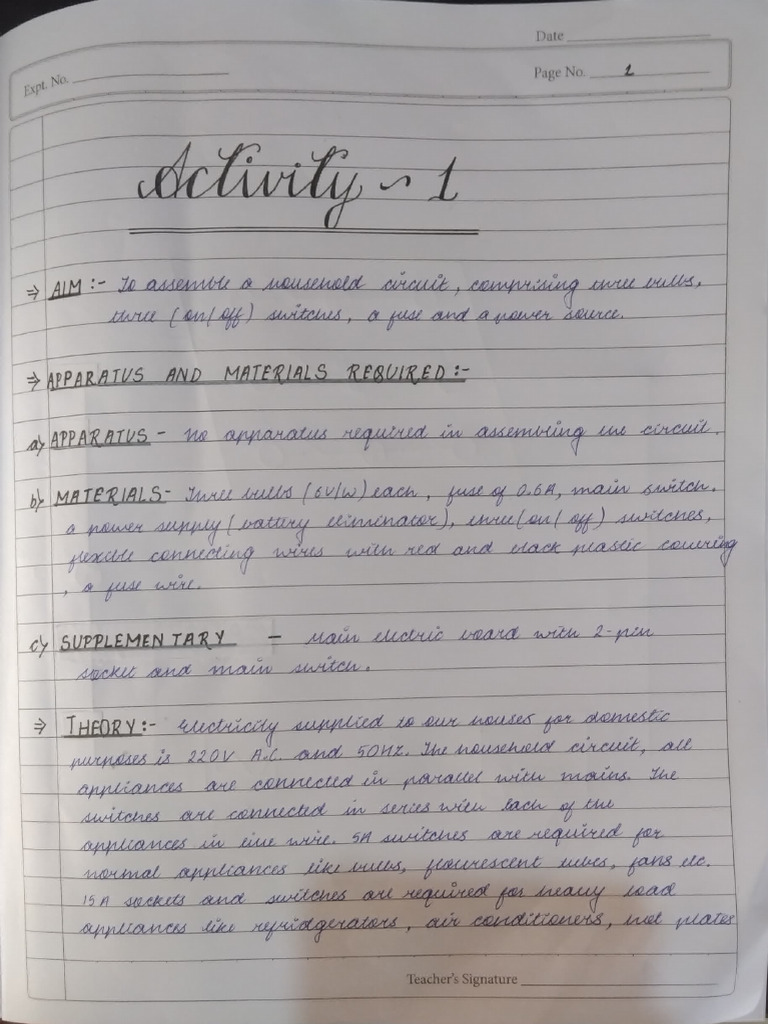 Date
Expt. No.
Page No. 1
Activity ~ 1
⇒ AIM :- To assemble a household circuit, comprising three bulbs,
three (on/off) switches, a fuse and a power source.
⇒ APPARATUS AND MATERIALS REQUIRED :-
a) APPARATUS - No apparatus required in assembring the circuit.
b) MATERIALS - Three bulbs (6V/W) each, fuse of 0.6A, main switch.
a power supply (battery eliminator), three (on/off) switches,
flexible connecting wires with red and black plastic covering
, a fuse wire.
c) SUPPLEMENTARY - Main electric board with 2-pen
socket and main switch.
⇒ THEORY :- Electricity supplied to our houses for domestic
purposes is 220V A.C. and 50HZ. The household circuit, all
appliances are connected in parallel with mains. The
switches are connected in series with each of the
appliances in live wire. 5A switches are required for
normal appliances like bulbs, flourescent tubes, fans etc.
15A sockets and switches are required for heavy load
appliances like refridgerators, air conditioners, hot plates
Teacher's Signature